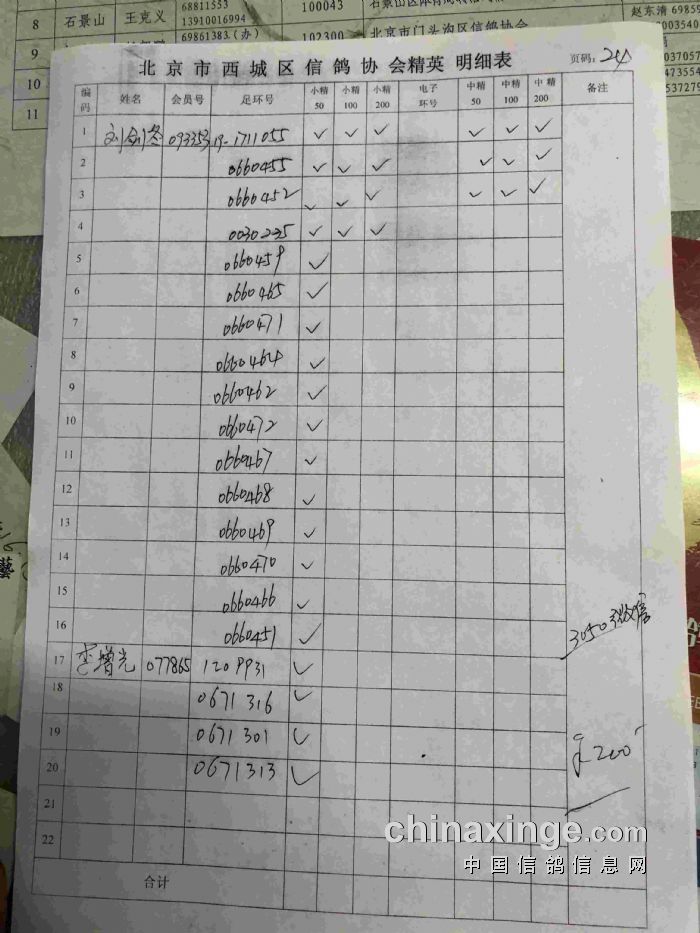 8 石景山 王克义 68811553 13910016994 100043
9 69861383(办) 102300 北京市门头沟区信鸽协会 赵东清
10
11
北京市西城区信鸽协会精英 明细表 页码：
编码 姓名 会员号 足环号 小精50 小精100 小精200 电子环号 中精50 中精100 中精200 备注
1 093353 19-1711055 ✓ ✓ ✓ ✓ ✓ ✓
2 0660455 ✓ ✓ ✓ ✓ ✓ ✓
3 0660452 ✓ ✓ ✓ ✓ ✓ ✓
4 0030235 ✓ ✓ ✓
5 0660459 ✓
6 0660465 ✓
7 0660471 ✓
8 0660464 ✓
9 0660462 ✓
10 0660472 ✓
11 0660467 ✓
12 0660468 ✓
13 0660469 ✓
14 0660470 ✓
15 0660466 ✓
16 0660451 ✓ 3050
17 李增光 077865 1209931 ✓
18 0671316 ✓
19 0671301 ✓
20 0671313 ✓ 200
21
22
合计
chinaxinge.com
中国信鸽信息网